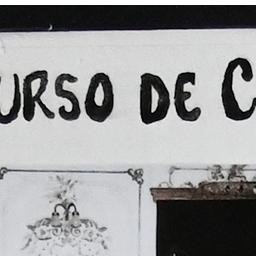 URSO DE C